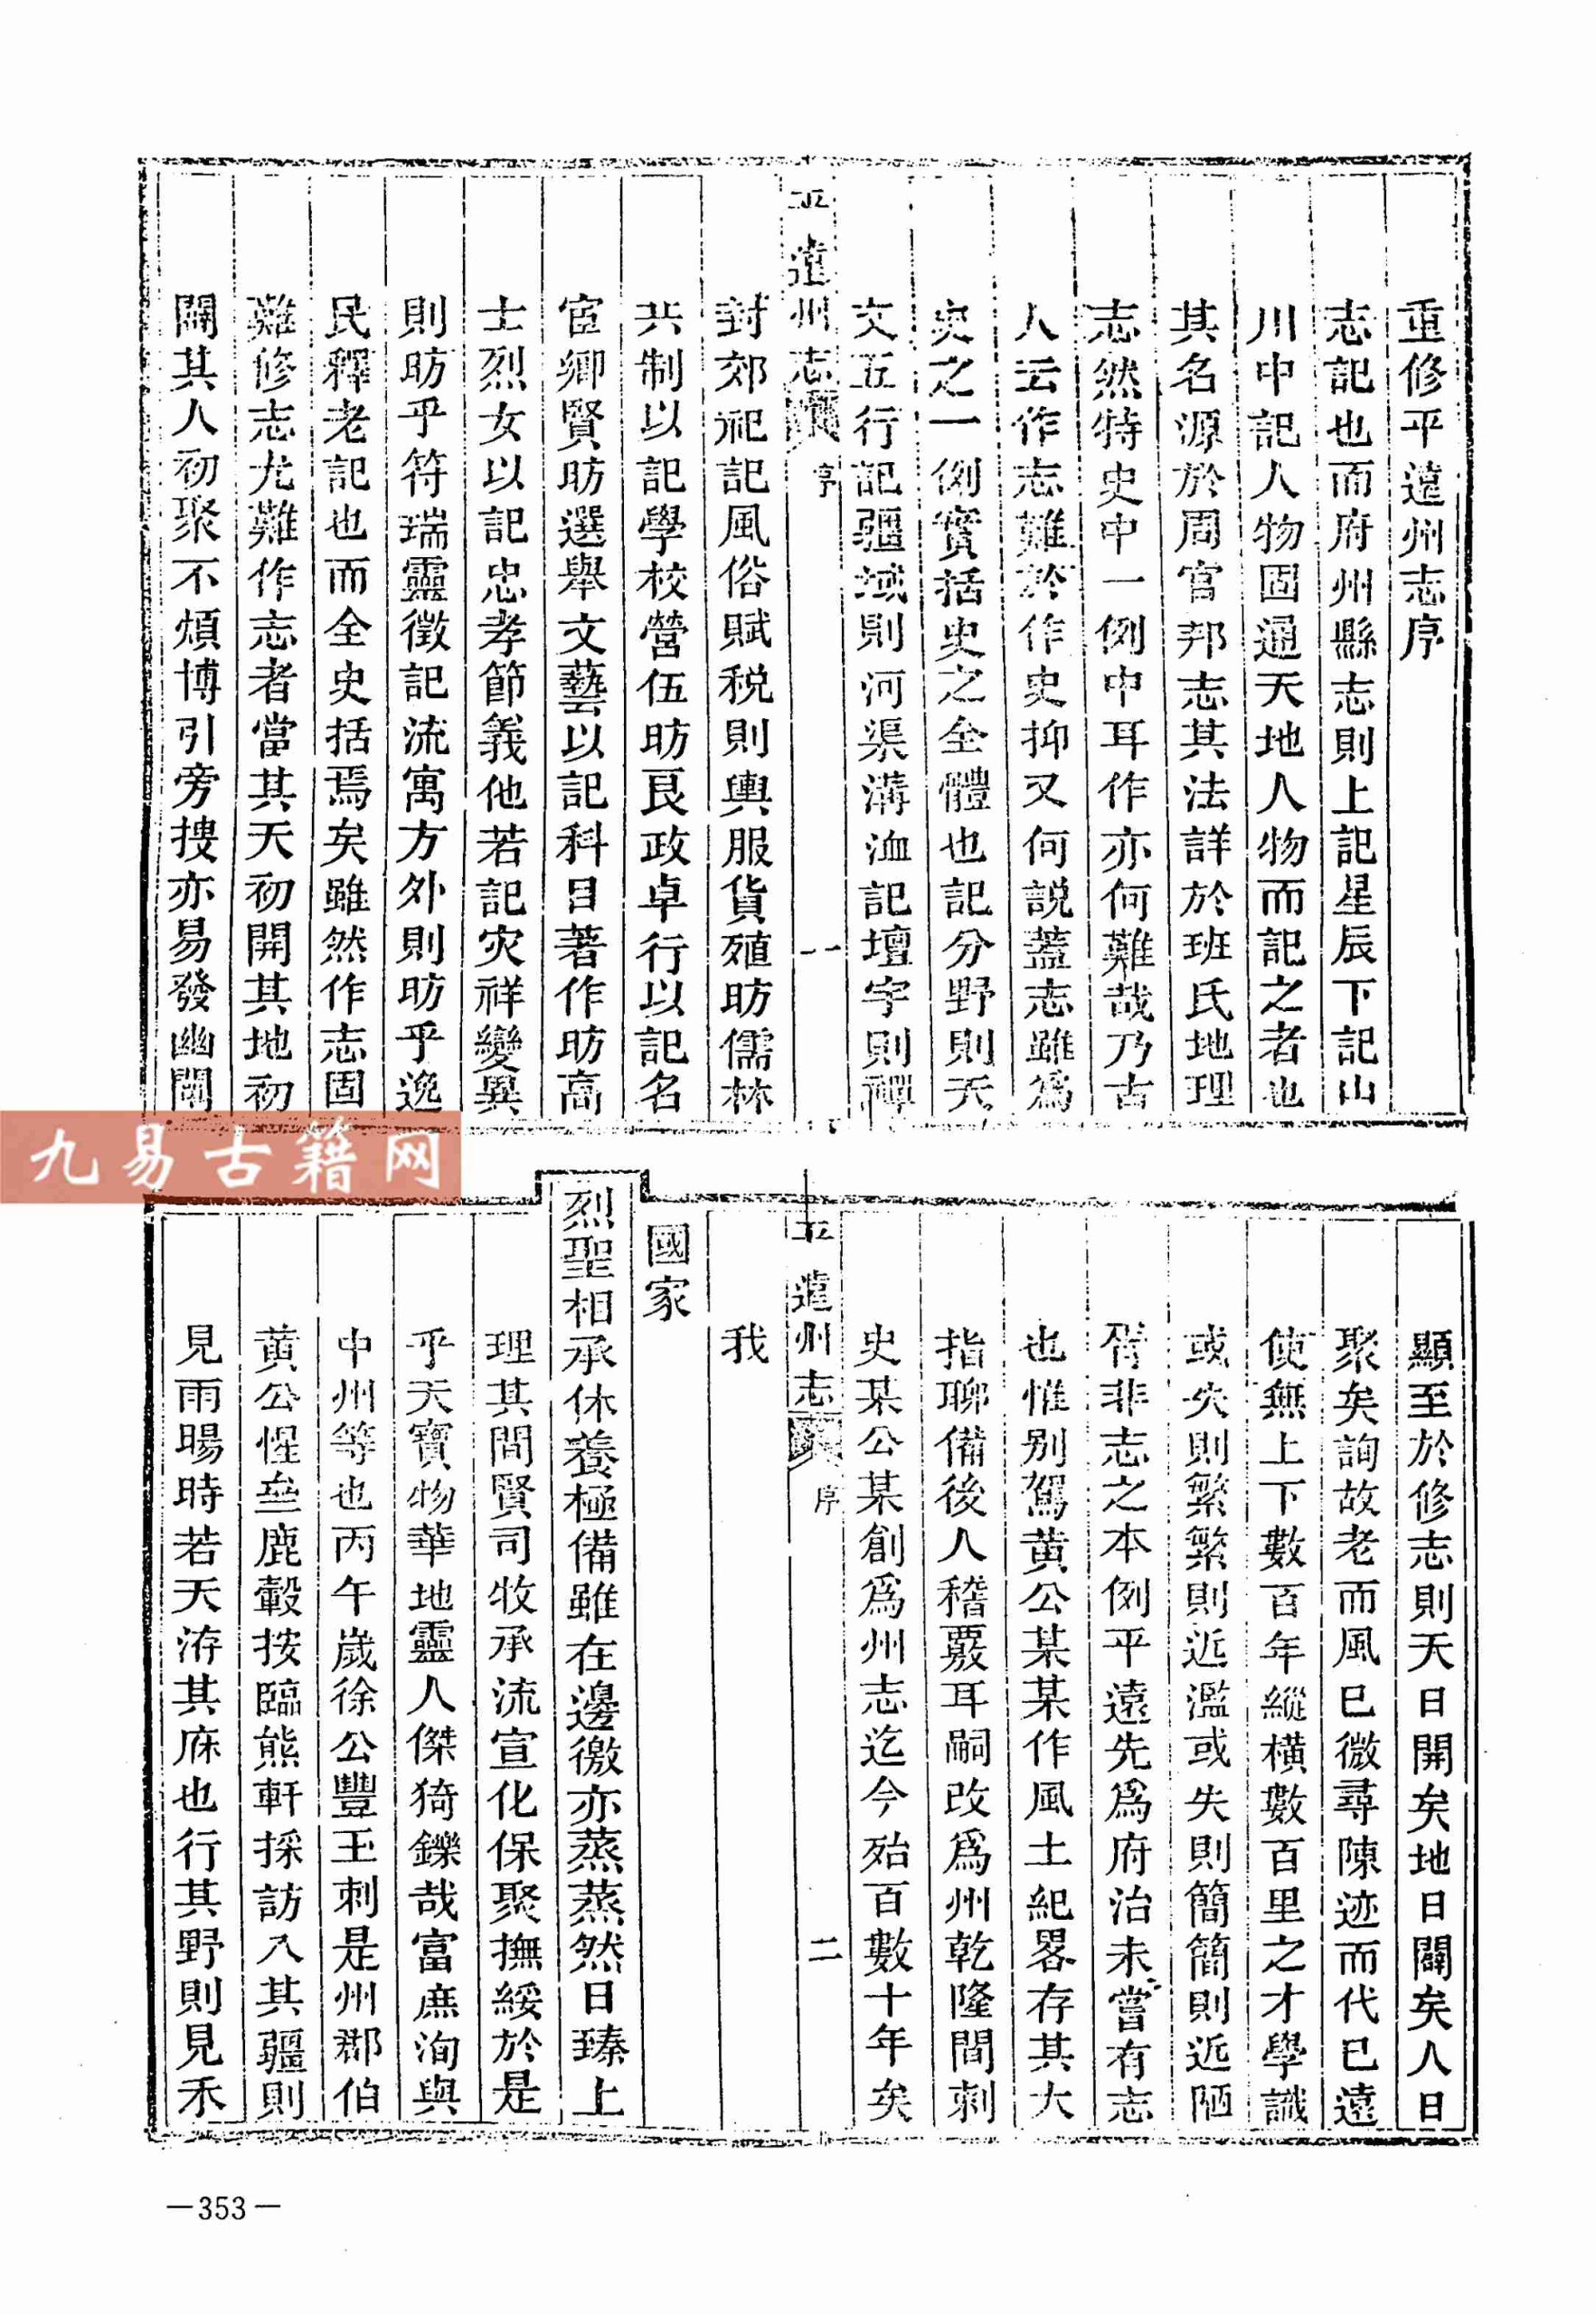 重修平遠州志序
志記也而府州縣志則上記星辰下記山
川中記人物固通天地人物而記之者也
其名源於周官邦志其法詳於班氏地理
志然特史中一例中耳作亦何難哉乃古
人云作志難於作史抑又何説蓋志雖爲
史之一例實括史之全體也記分野則天
文五行記疆域則河渠溝洫記壇宇則禪
平遠州志
序
一
封郊祀記風俗賦税則輿服貨殖昉儒林
共制以記學校營伍昉良政卓行以記名
宦鄉賢昉選舉文藝以記科目著作昉高
士烈女以記忠孝節義他若記灾祥變異
則昉乎符瑞靈徵記流寓方外則昉乎逸
民釋老記也而全史括焉矣雖然作志固
難修志尤難作志者當其天初開其地初
闢其人初聚不煩博引旁捜亦易發幽闡
顯至於修志則天日開矣地日闢矣人日
聚矣詢故老而風已微尋陳迹而代已遠
使無上下數百年縱横數百里之才學識
或失則繁繁則近濫或失則簡簡則近陋
胥非志之本例平遠先爲府治未嘗有志
也惟别駕黄公某某作風土紀畧存其大
指聊備後人稽覈耳嗣改爲州乾隆間刺
史某公某創爲州志迄今殆百數十年矣
平遠州志
序
二
我
國家
烈聖相承休養極備雖在邊徼亦蒸蒸然日臻上
理其間賢司牧承流宣化保聚撫綏於是
乎天寶物華地靈人傑猗鑠哉富庶洵與
中州等也丙午嵗徐公豐玉刺是州郡伯
黄公惺壘鹿轂按臨熊軒採訪入其疆則
見雨暘時若天洊其庥也行其野則見禾
九易古籍网
—353—